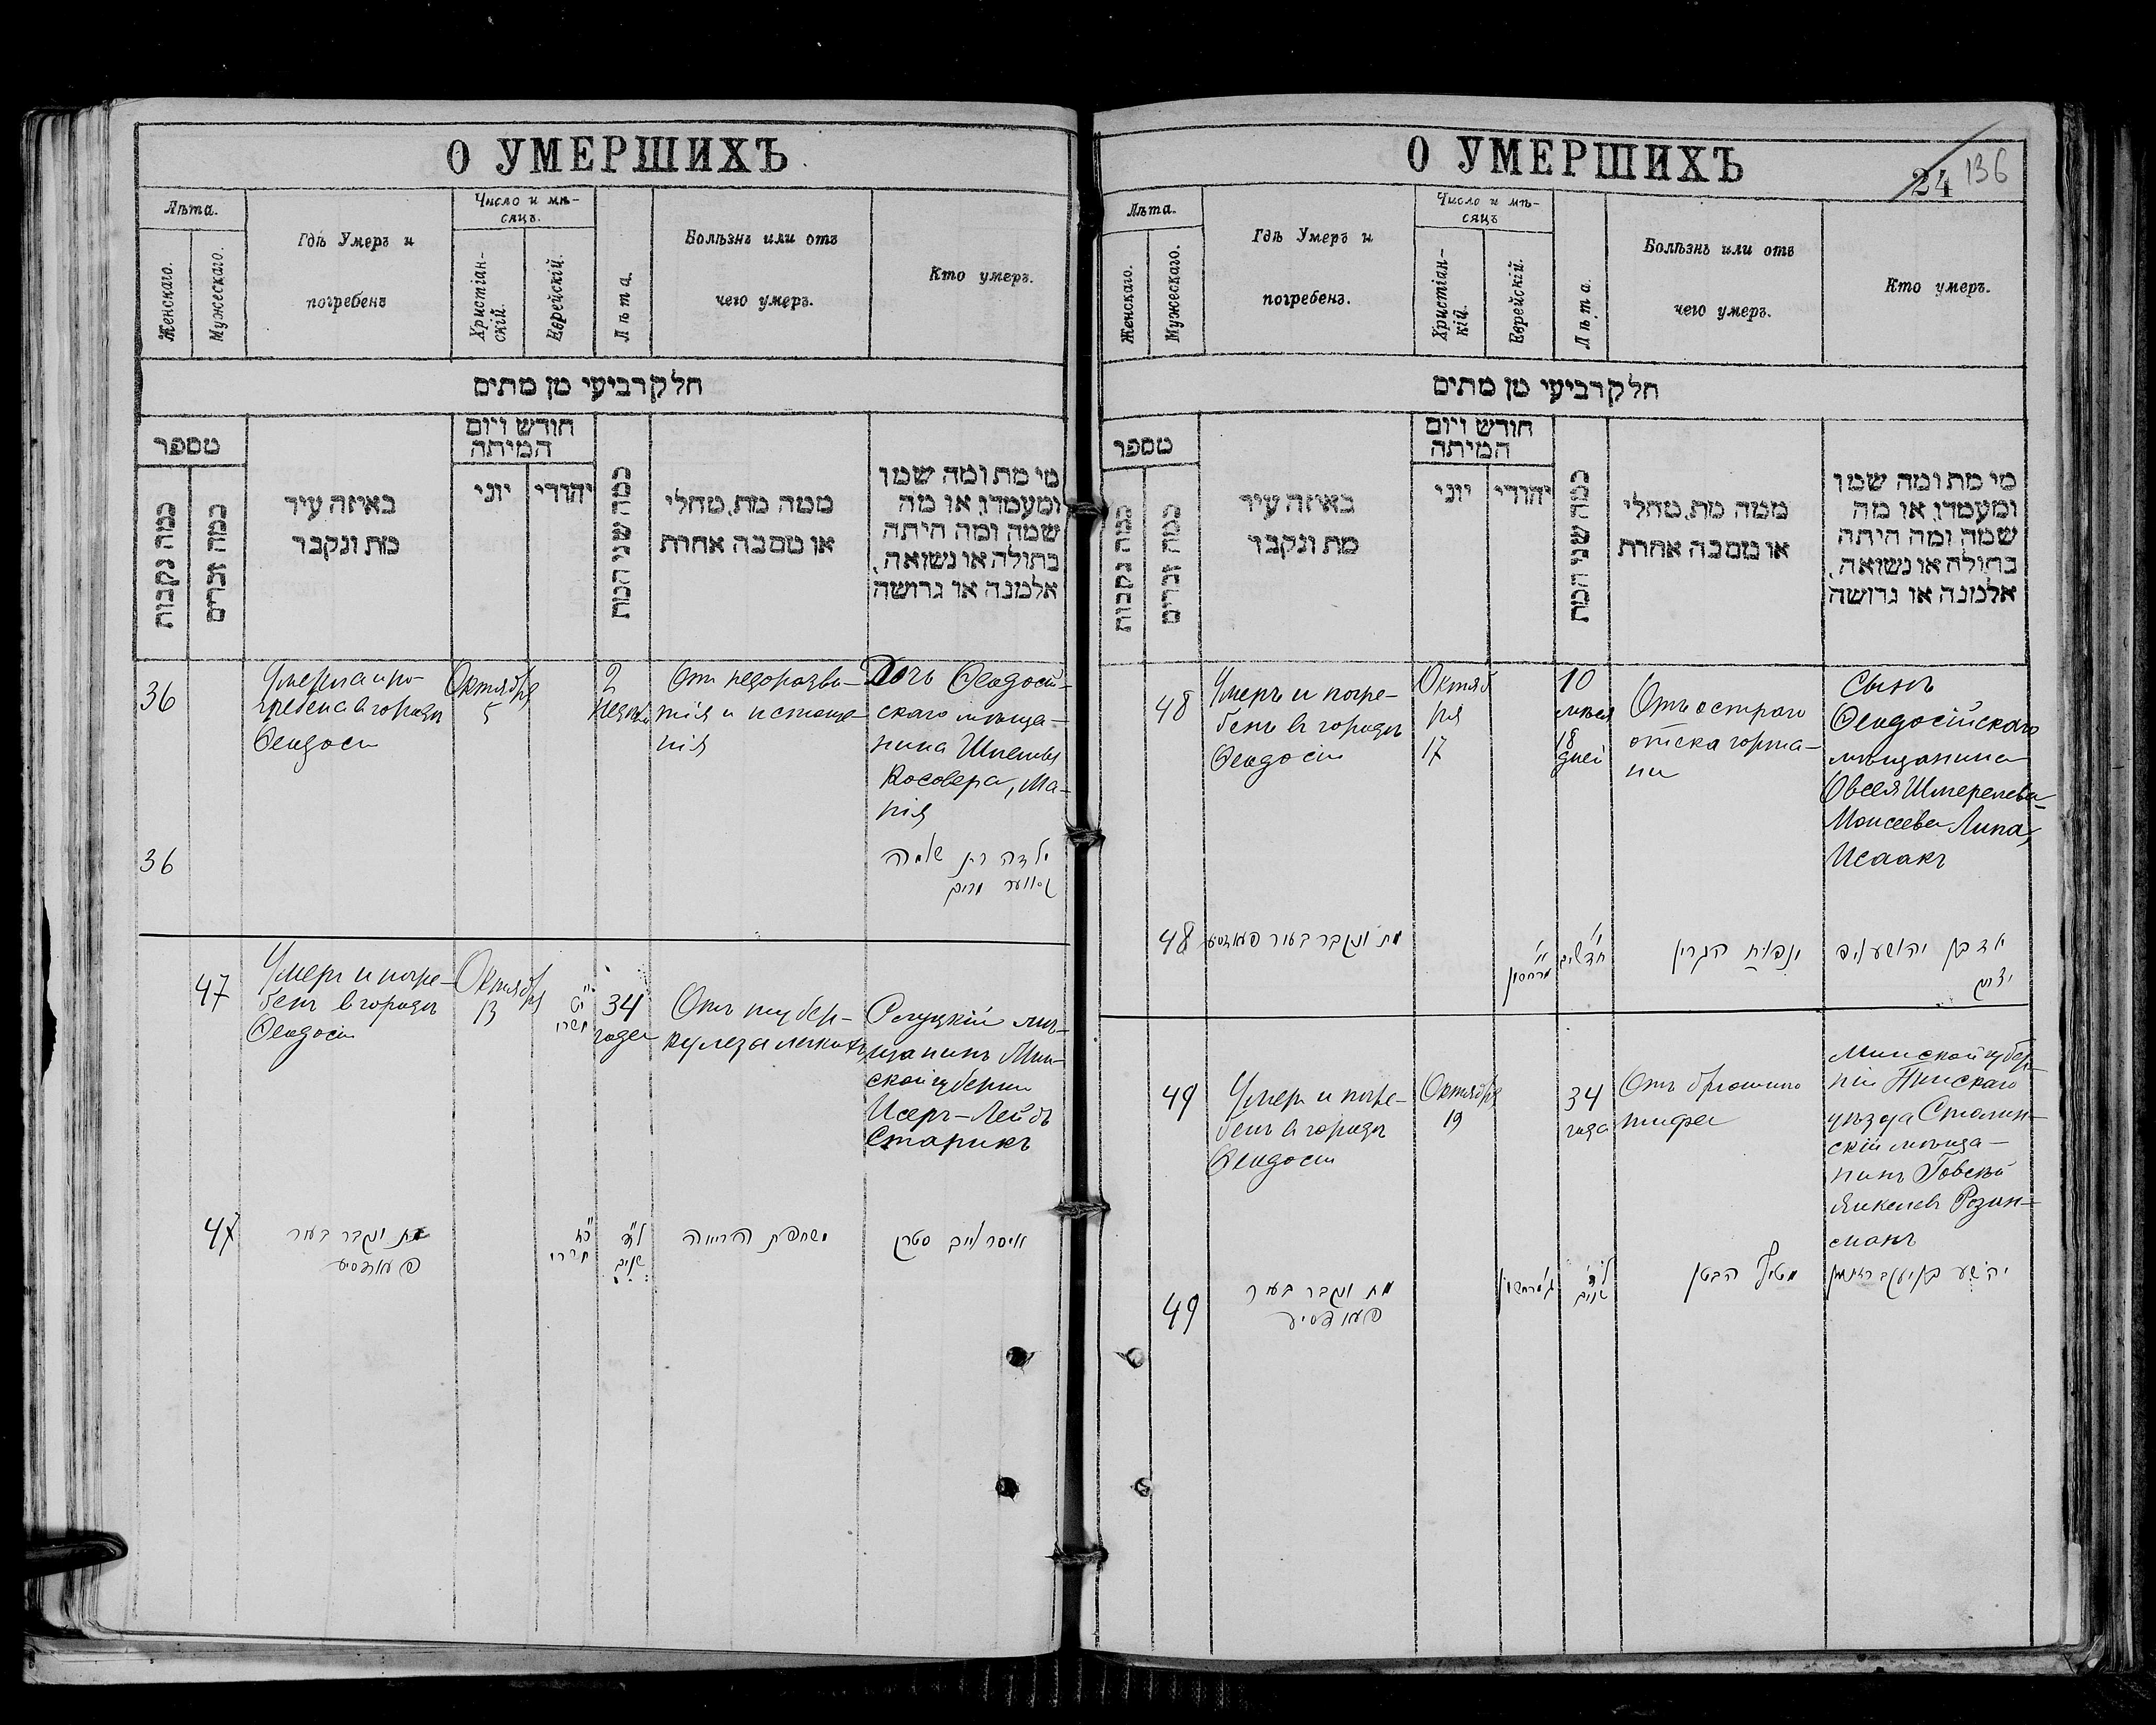 О УМЕРШИХЪ
Лѣта.
Женскаго.
Мужескаго.
Гдѣ Умеръ и
погребенъ
Число и мѣ-
сяцъ.
Христіан-
скій.
Еврейскій.
Лѣта.
Болѣзнь или отъ
чего умеръ.
Кто умеръ.
חלק רביעי מן מתים
מספר
כמה נקבות
כמה זכרים
באיזה עיר
מת ונקבר
חודש ויום
המיתה
יוני
יהודי
כמה שני המת
ממה מת, מחלי
או מסבה אחרת
מי מת ומה שמו
ומעמדו, או מה
שמה ומה היתה
בתולה או נשואה,
אלמנה או גרושה
36
Умерла и по-
гребена в городѣ
Ѳеодосіи
Октября
5
2
недѣли
От недоразви-
тія и истоще-
нія
Дочь Ѳеодосій-
скаго мѣща-
нина Шлемы
Косовера, Ма-
нія
36
ילדה בת שלמה
קסווער מרים
47
Умеръ и погре-
бенъ в городѣ
Ѳеодосіи
Октября
13
תשרי
34
года
Отъ тубер-
кулеза легкихъ
Слуцкій мѣ-
щанинъ Мин-
ской губерніи
Исеръ-Лейбъ
Старикъ
47
מת ונקבר בעיר
פעאדסיע
תשרי
שנים
שחפת הריאה
איסר לייב סטריק
О УМЕРШИХЪ
24 136
Лѣта.
Женскаго.
Мужескаго.
Гдѣ Умеръ и
погребенъ.
Число и мѣ-
сяцъ
Христіан-
кій.
Еврейскій.
Лѣта.
Болѣзнь или отъ
чего умеръ.
Кто умеръ.
חלק רביעי מן מתים
מספר
כמה נקבות
כמה זכרים
באיזה עיר
מת ונקבר
חודש ויום
המיתה
יוני
יהודי
כמה שני המת
ממה מת, מחלי
או מסבה אחרת
מי מת ומה שמו
ומעמדו, או מה
שמה ומה היתה
בתולה או נשואה,
אלמנה או גרושה
48
Умеръ и погре-
бенъ в городѣ
Ѳеодосіи
Октяб
ря
17
10
мѣсяц
18
дней
Отъ остраго
отека горта-
ни
Сынъ
Ѳеодосійскаго
мѣщанина
Овсея Шмерелева-
Моисеева Липа,
Исаакъ
48
מת ונקבר בעיר פעאדסיע
מרחשון
חדשים
הגרון
ילד בן יהושע ליפ
יצחק
49
Умеръ и погре-
бенъ в городѣ
Ѳеодосіи
Октября
19
34
года
Отъ брюшного
тифа
Минской губер-
ніи Пинскаго
уѣзда Столин-
скій мѣща-
нинъ Говсѣй
Янкелевъ Розан-
сманъ
49
מת ונקבר בעיר
פעאדסיע
מרחשון
שנים
הבטן